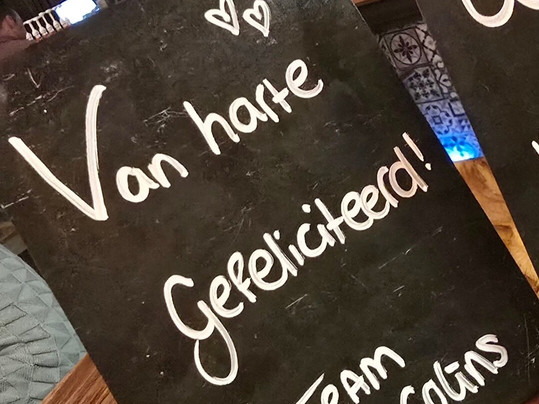 Van harte
Gefeliciteerd!
TEAM
Colins